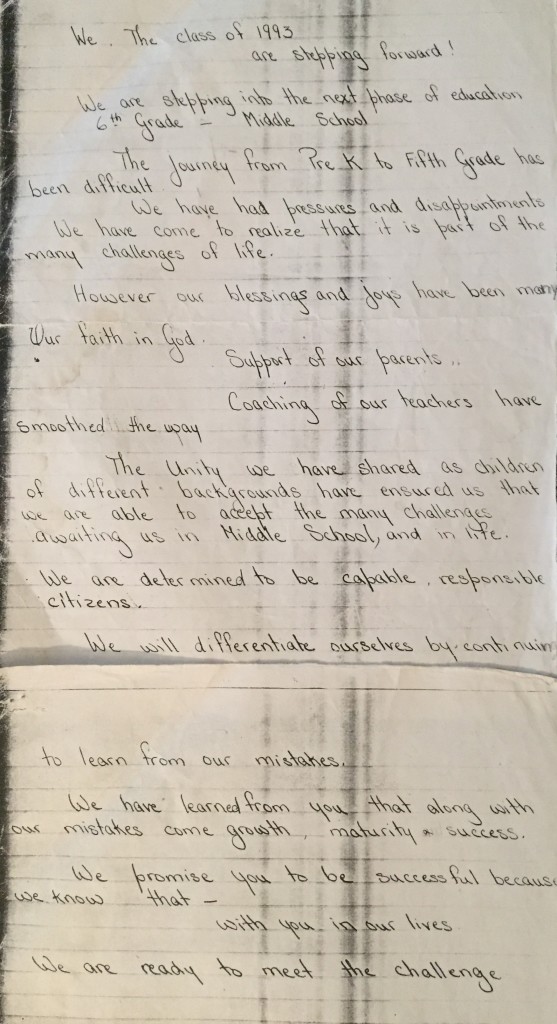 We. The class of 1993
are stepping forward!
We are stepping into the next phase of education
6th Grade - Middle School
The Journey from Pre K to Fifth Grade has
been difficult
We have had pressures and disappointments
We have come to realize that it is part of the
many challenges of life.
However our blessings and joys have been many
Our faith in God.
Support of our parents..
Coaching of our teachers have
smoothed the way
The Unity we have shared as children
of different backgrounds have ensured us that
we are able to accept the many challenges
awaiting us in Middle School, and in life.
We are determined to be capable, responsible
citizens.
We will differentiate ourselves by continuin
to learn from our mistakes.
We have learned from you that along with
our mistakes come growth, maturity & success.
We promise you to be successful because
we know that -
with you in our lives
We are ready to meet the challenge